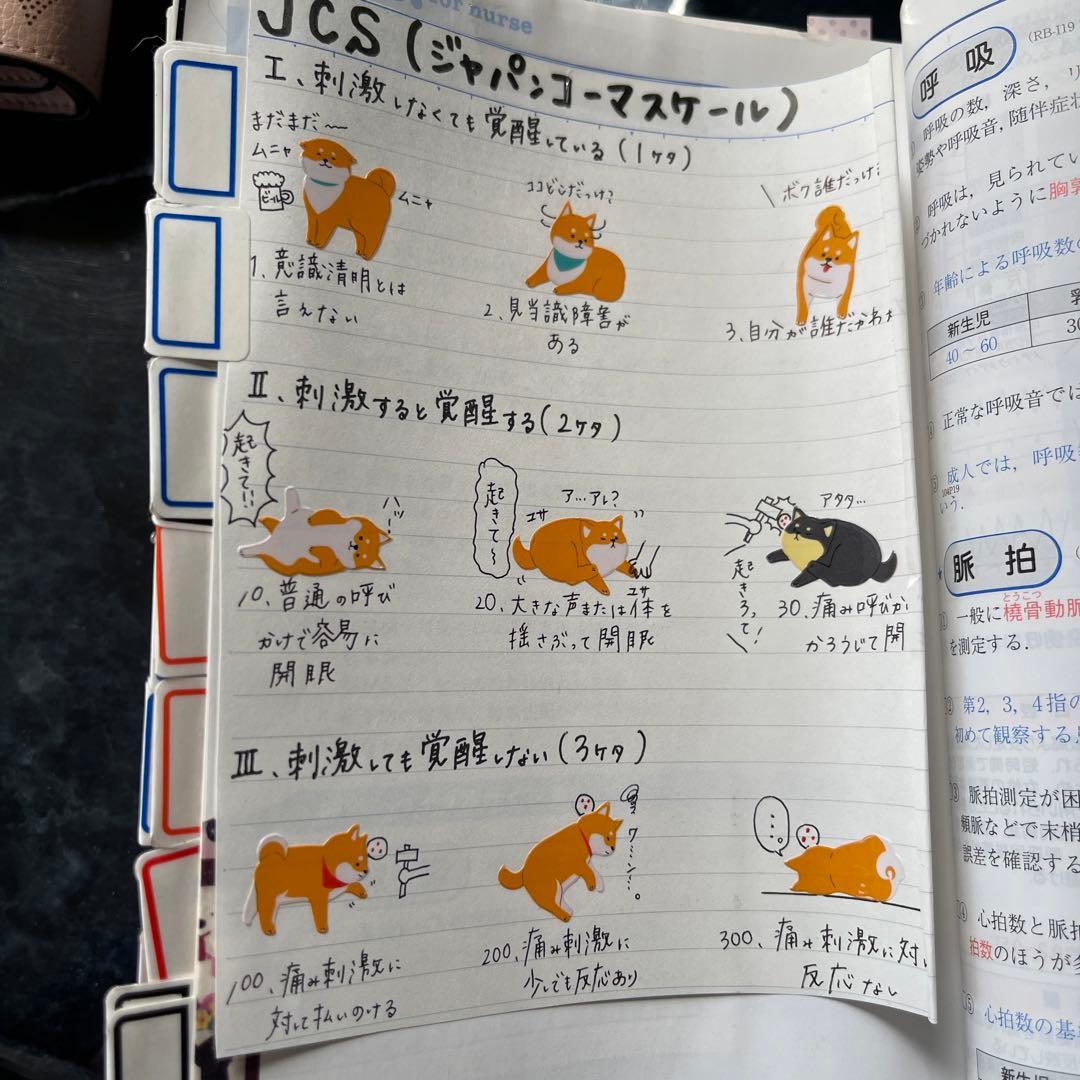 for nurse
JCS (ジャパンコーマスケール)
I、刺激しなくても覚醒している(1ケタ)
まだまだ〜
ムニャ
ビール
ムニャ
ココどこだっけ?
\ ボク誰だっけ?
1、意識清明とは
言えない
2、見当識障害が
ある
3、自分が誰だかわか
II、刺激すると覚醒する(2ケタ)
起きてい!
ハッ!
起きて〜
ア…アレ?
ユサ
ユサ
アタタ…
起きろって!
10、普通の呼び
かけで容易に
開眼
20、大きな声または体を
揺さぶって開眼
30、痛み呼びか
かろうじて開
III、刺激しても覚醒しない(3ケタ)
ワ…ン…。
…
100、痛み刺激に
対して払いのける
200、痛み刺激に
少しでも反応あり
300、痛み刺激に対し
反応なし
呼 吸
(RB-I19
呼吸の数,深さ,リ
姿勢や呼吸音,随伴症状
呼吸は,見られてい
づかれないように胸郭
年齢による呼吸数の
新生児
乳
40～60
30
正常な呼吸音では
成人では,呼吸
104P19
いう.
脈 拍
とうこつ
一般に橈骨動脈
を測定する.
第2,3,4指の
初めて観察する
脈拍測定が困
頻脈などで末梢
誤差を確認する
心拍数と脈拍
拍数のほうが多
15 心拍数の基
新生児